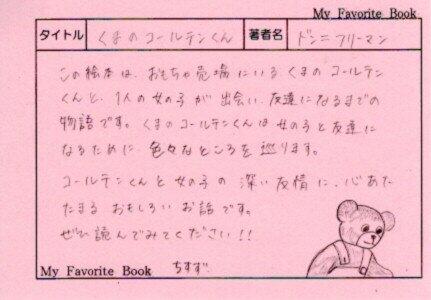 My Favorite Book
タイトル くまのコールテンくん 著者名 ドン=フリーマン
この絵本は、おもちゃ売場にいるくまのコールテン
くんと、1人の女の子が出会い、友達になるまでの
物語です。くまのコールテンくんは女の子と友達に
なるために、色々なところを巡ります。
コールテンくんと女の子の深い友情に、心あた
たまるおもしろいお話です。
ぜひ読んでみてください!!
My Favorite Book ちすず